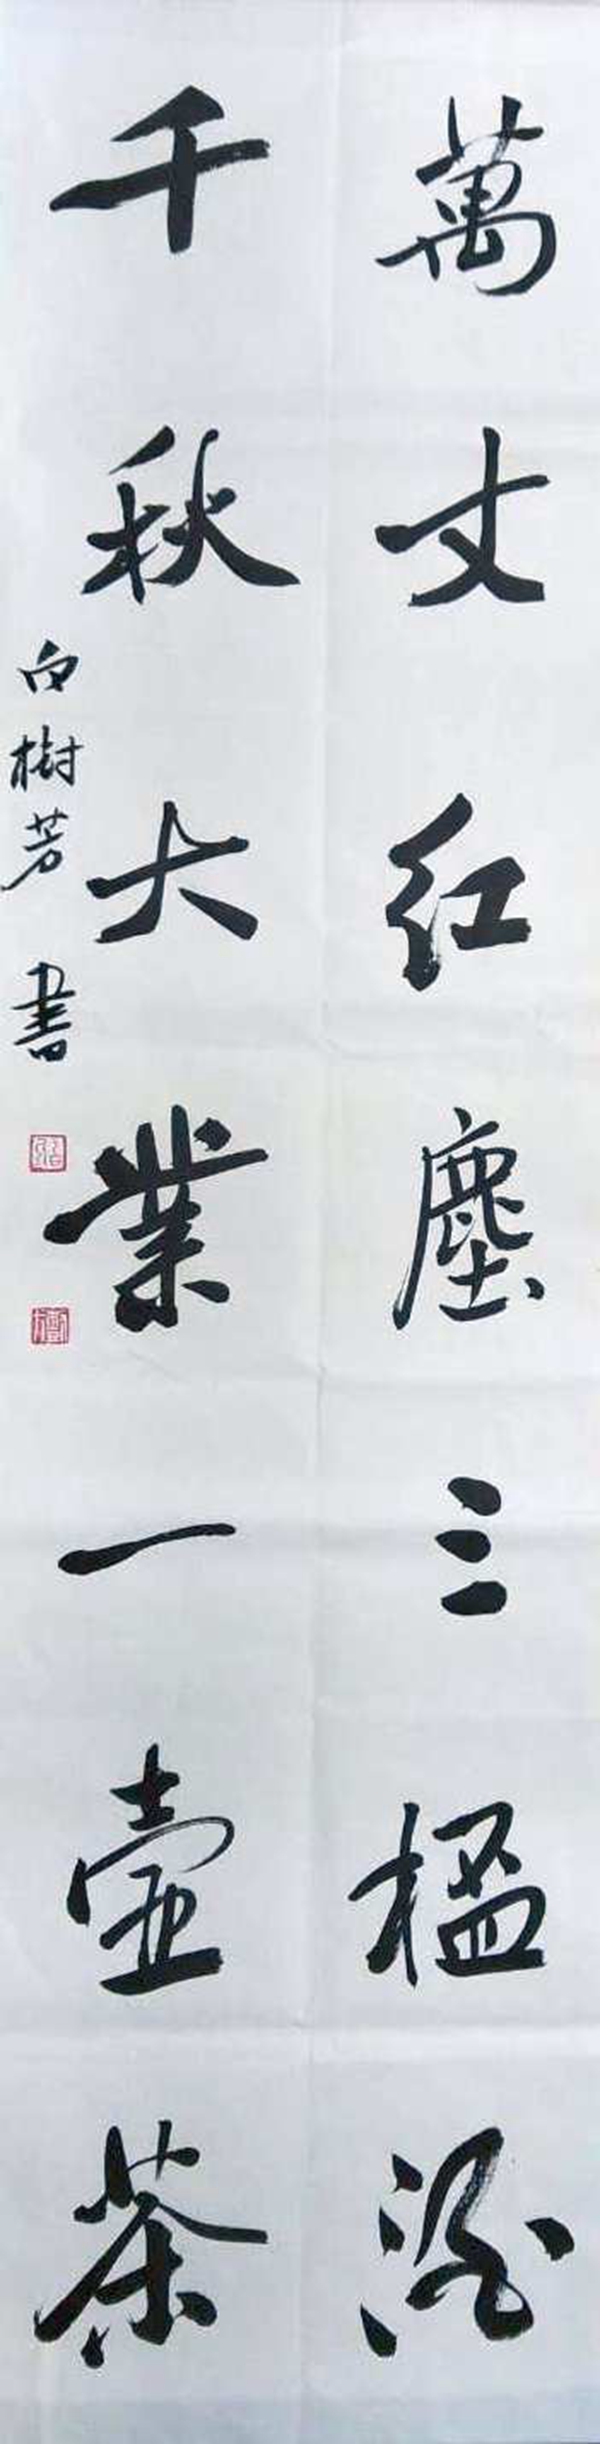 萬丈红塵三榅酒
千秋大業一壺茶
白樹芳書